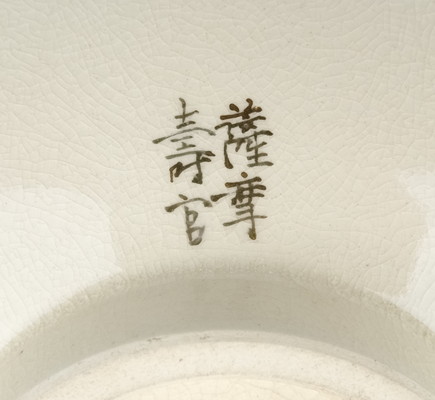 薩摩
壽官